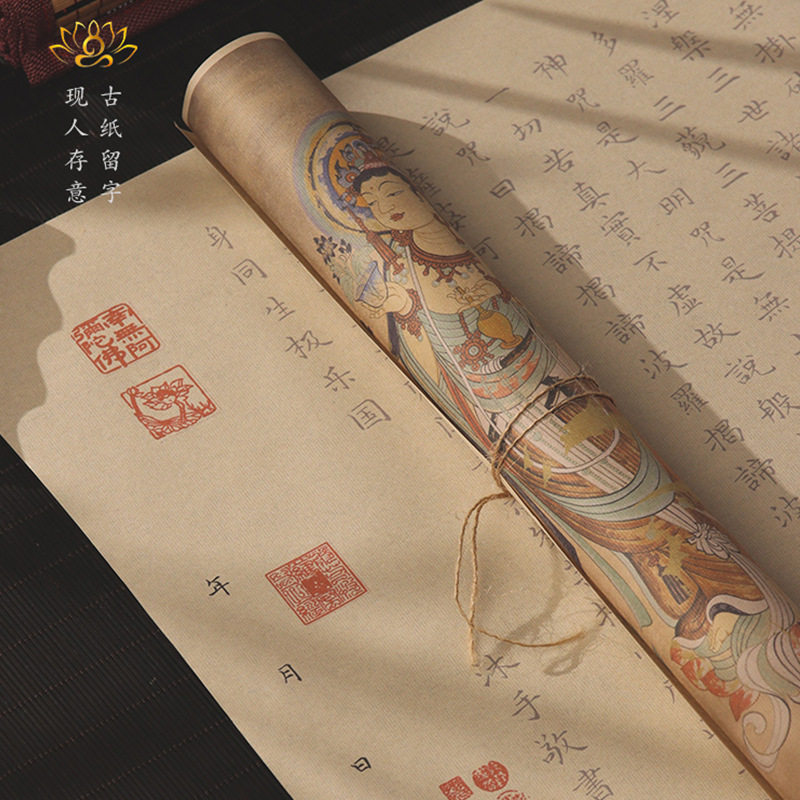 古纸留字
现人存意
無掛
涅槃三世諸
多羅三藐三菩提
神咒是大明咒是無
一切苦真實不虛故說般
說咒曰揭諦揭諦波羅揭諦波
身同生极乐国
沐手敬書
年月日
南無阿彌陀佛